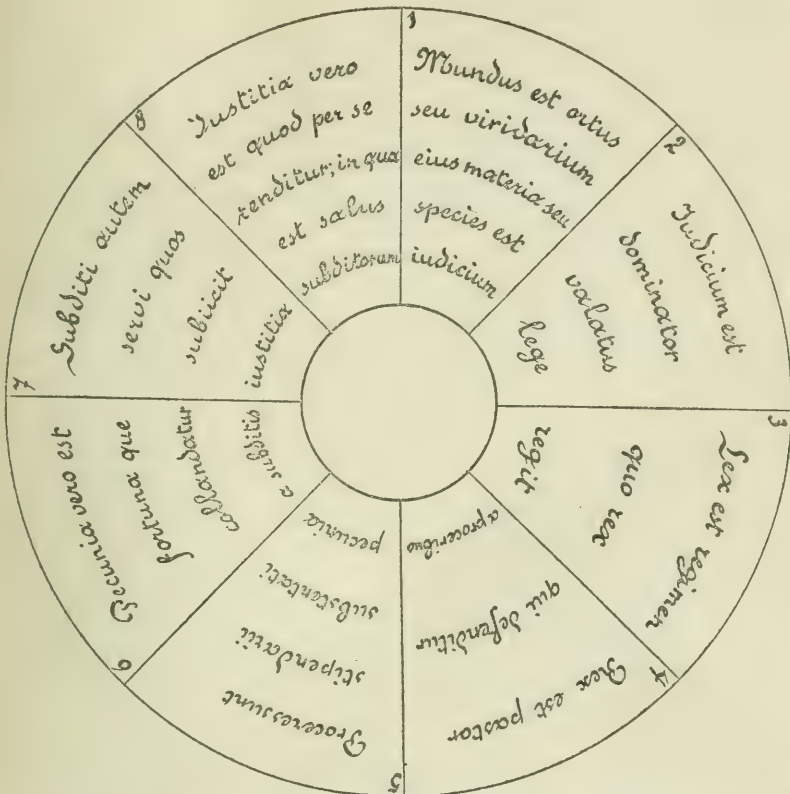 1
Mundus est ortus
seu viridarium
eius materia seu
species est
iudicium
2
Iudicium est
dominator
valatus
lege
3
Lex est regimen
quo rex
regit
4
Rex est pastor
qui defenditur
a proceribus
5
Proceres sunt
stipendarii
substentati
pecunia
6
Pecunia vero est
fortuna que
collandatur
a subditis
7
Subditi autem
servi quos
subiicit
iustitia
8
Justitia vero
est quod per se
renditur; in qua
est salus
subditorum